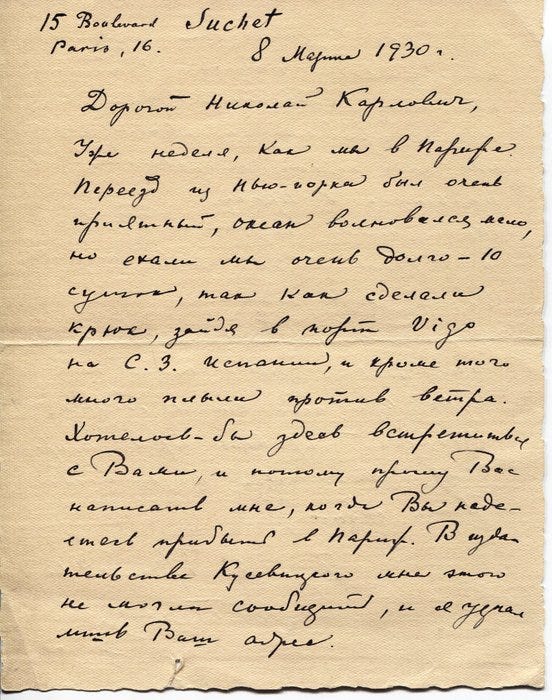 15 Boulevard Suchet
Paris, 16.
8 Марта 1930 г.
Дорогой Николай Карлович,
Уже неделя, как мы в Париже.
Переезд из Нью-Йорка был очень
приятный, океан волновался мало,
но ехали мы очень долго - 10
суток, так как сделали
крюк, зайдя в порт Vigo
на С. З. Испании, и кроме того
много плыли против ветра.
Хотелось-бы здесь встретиться
с Вами, и потому прошу Вас
написать мне, когда Вы наде-
етесь прибыть в Париж. В изда-
тельстве Кусевицкого мне этого
не могли сообщить, и я
Ваш адрес.